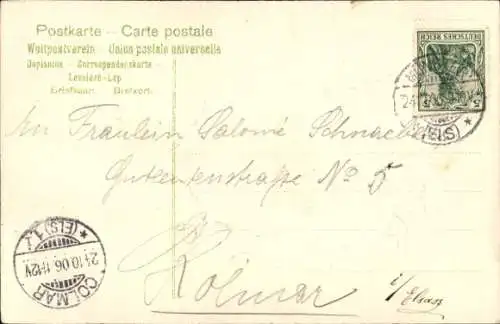 Postkarte – Carte postale
Weltpostverein – Union postale universelle
Dopisnice – Correspondenzkarte
Levelező-Lap
Briefkaart Brefkort
DEUTSCHES REICH
5 5
24
(ELS)
An Fräulein Salomé Schnaebele
straße No 5
Kolmar
i/Elsass
COLMAR
24.10.06.11-12V
* (ELS) 1. *